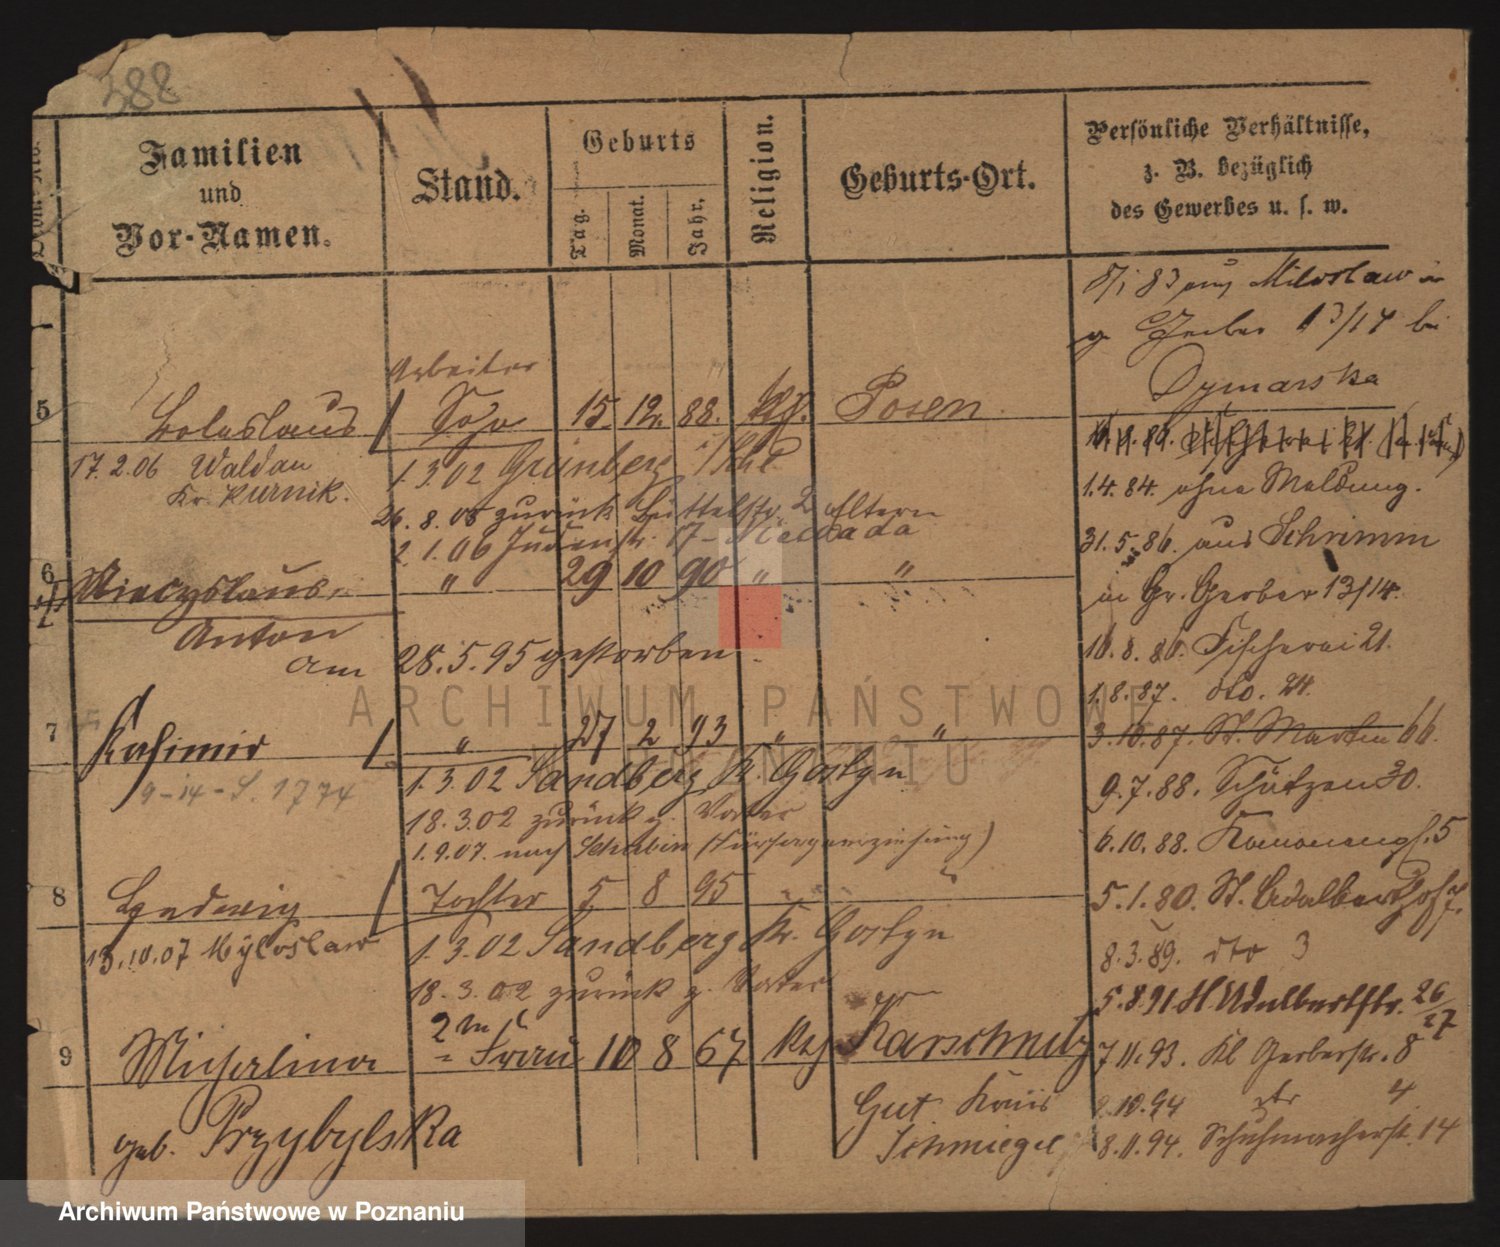 388
Familien
und
Vor-Namen.
Stand.
Geburts
Tag.
Monat.
Jahr.
Religion.
Geburts-Ort.
Persönliche Verhältnisse,
z. B. bezüglich
des Gewerbes u. s. w.
83 aus Miloslaw in
g Gerber 13/14 bei
Dymarska
Arbeiter
5 Boleslaus Sohn 15. 12. 88. kth. Posen
17.2.06 Waldau
Kr. Kurnik.
1.3.02 Grünberg
26.8.05 zurück Büttelstr. 2 Eltern
2.1.06 Judenstr. 17
6 Miecyslaus " 29 10 90 " "
Anton
am 28.5.95 gestorben
7 Kasimir " 27 2 93 " "
9-14-S. 1774
1.3.02 Sandberg Kr. Gostyn
18.3.02 zurück z. Vater
1.9.07. nach Schubin (Fürsorgeerziehung)
8 Ludwig Tochter 5 8 95 " "
13.10.07 Myloslaw
1.3.02 Sandberg Kr. Gostyn
18.3.02 zurück z. Vater
2te
9 Michalina Frau 10 8 67 kth Karschnitz
geb. Przybylska
Gut Kreis
Schmiegel
1.4.84. ohne Meldung.
31.5.86. aus Schrimm
in Gr. Gerber 13/14.
10.8.86. Fischerei 21.
1.8.87. dto. 24.
3.10.87. St. Martin 66.
9.7.88. Schützen 30.
6.10.88. 5
5.1.89. St. Adalbert 7.
8.3.89. dto 3
5.8.91 St Adalbertstr. 26/27
7.11.93. Kl Gerberstr. 8
2.10.94 dto 4
8.11.94. Schuhmacherstr. 14
ARCHIWUM PAŃSTWOWE
W POZNANIU
Archiwum Państwowe w Poznaniu